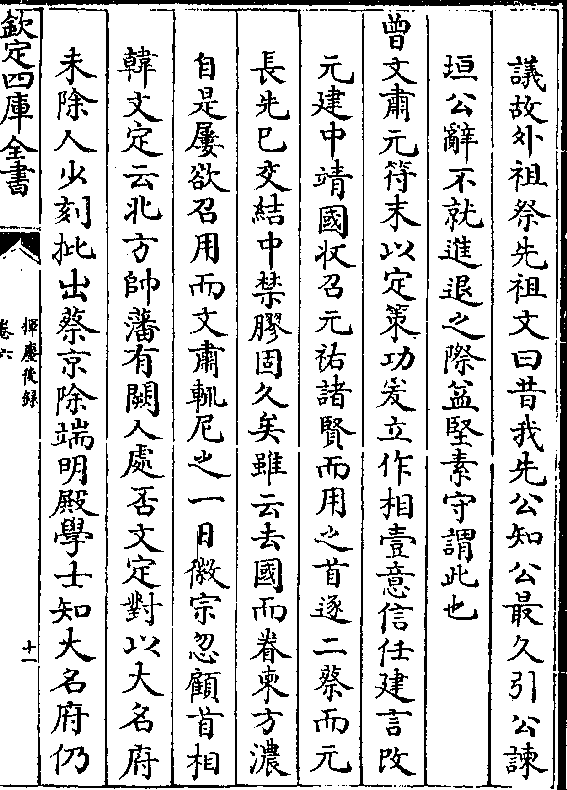 議故外祖祭先祖文曰昔我先公知公最久引公諫
垣公辭不就進退之際益堅素守謂此也
曾文肅元符末以定策功爰立作相壹意信任建言改
元建中靖國收召元祐諸賢而用之首逐二蔡而元
長先已交結中禁膠固久矣雖云去國而眷柬方濃
自是屢欲召用而文肅輒尼之一日徽宗忽顧首相
韓文定云北方帥藩有闕人處否文定對以大名府
未除人少刻批出蔡京除端明殿學士知大名府仍
欽定四庫全書
揮麈後録
卷六
十一